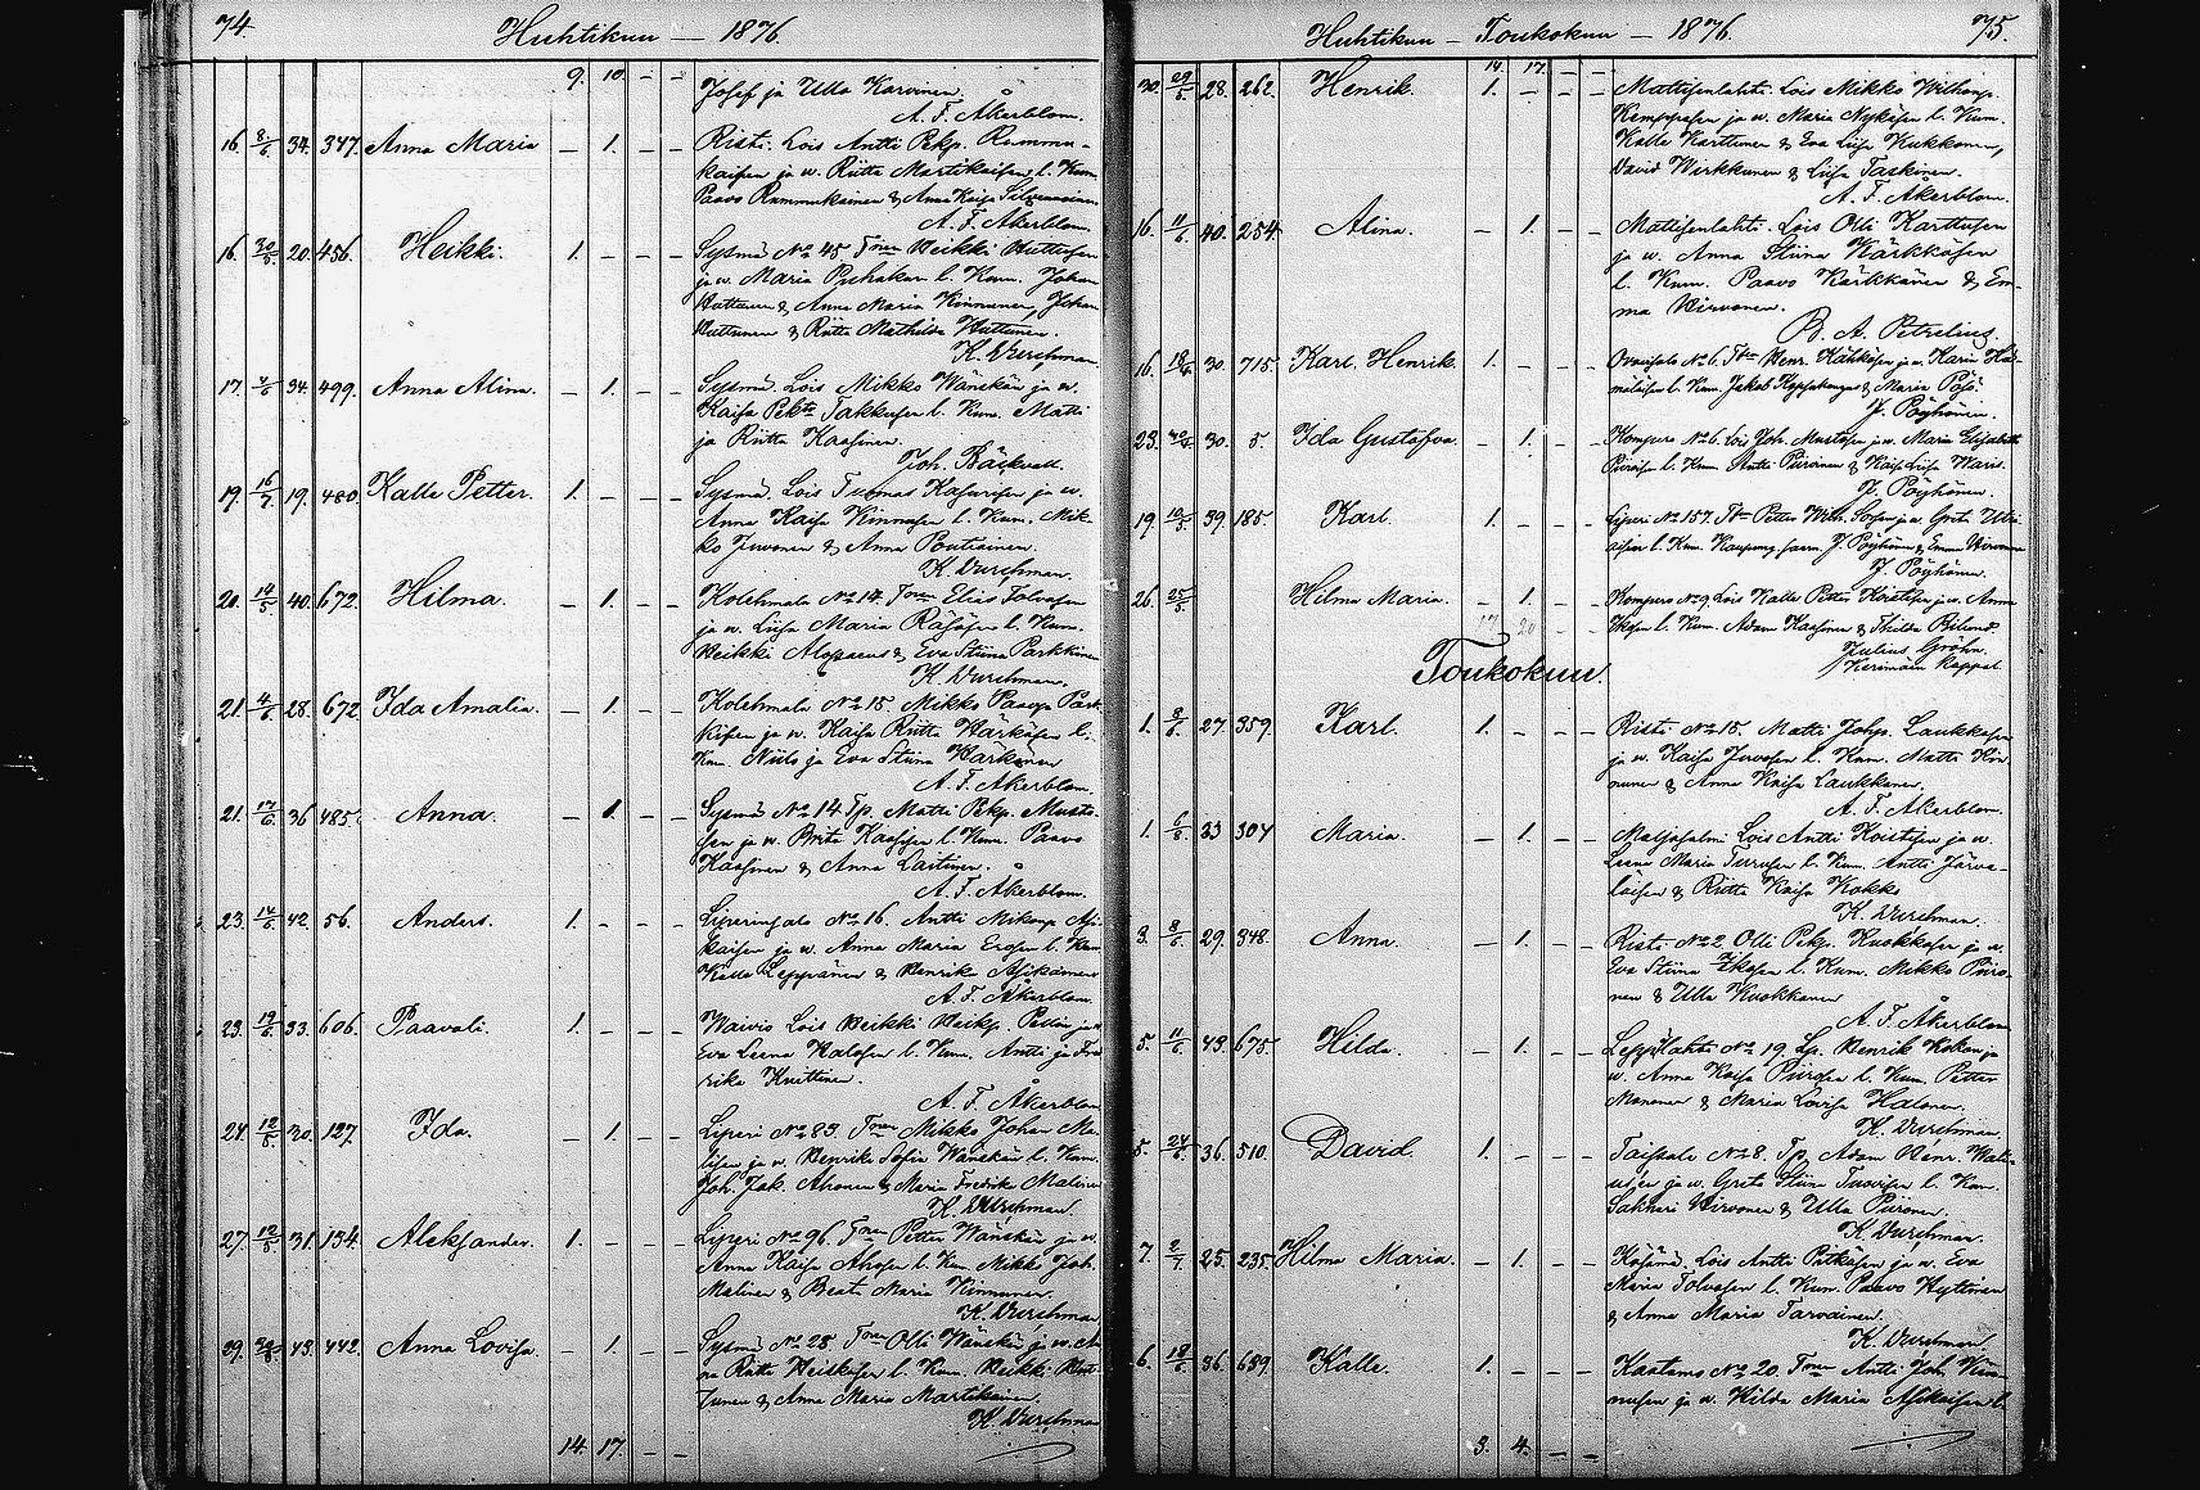 74.
Huhtikuu — 1876.
9. 10. – –
Josef ja Ulla Karvinen.
A. F. Åkerblom.
16. 8/6 34. 347. Anna Maria – 1. – – Risti. Lois Antti Pekp. Rummu-
kaisen ja w. Riitta Martikaisen l. Kum.
Paavo Rummukainen & Anna Kaisa
A. F. Åkerblom.
16. 30/5 20. 456. Heikki. 1. – – – Sysmä No 45 Heikki Huttusen
ja w. Maria l. Kum. Johan
Huttunen & Anna Maria Kinnunen, Johan
Huttunen & Riitta Mathilda Huttunen.
K. Durchman
17. 34. 499. Anna Alina. – 1. – – Sysmä. Lois Mikko Wänskän ja w.
Kaisa Pekt. Takkusen l. Kum. Matti
ja Riitta Kaasinen.
Joh. Bäckvall.
19. 16/7 19. 480. Kalle Petter. 1. – – – Sysmä. Lois Tuomas Kasurisen ja w.
Anna Kaisa Kinnusen l. Kum. Mik-
ko Juvonen & Anna Pontiainen.
K. Durchman.
20. 14/5 40. 672. Hilma. – 1. – – Kolehmala No 14. Elias Tolvasen
ja w. Liisa Maria Räsäsen l. Kum.
Heikki Alopaeus & Eva Stiina Parkkinen
K. Durchman.
21. 4/6 28. 672 Ida Amalia. – 1. – – Kolehmala No 15. Mikko Paavop. Park-
kisen ja w. Kaisa Riitta Härkösen l.
Kum. Niilo ja Eva Stiina Härkönen
A. F. Åkerblom.
21. 17/6 36 485. Anna. – 1. – – Sysmä No 14 Tp. Matti Pekp. Musto-
sen ja w. Brita Kaasisen l. Kum. Paavo
Kaasinen & Anna Laitinen.
A. F. Åkerblom.
23. 14/6 42. 56. Anders. 1. – – – Liperinsalo No 16. Antti Mikonp. Asi-
kaisen ja w. Anna Maria Erosen l. Kum
Kalle Leppänen & Henrika Asikainen
A. F. Åkerblom.
23. 19/6 33. 606. Paavali. 1. – – – Waivio Lois Heikki Heikp. ja w
Eva Leena Halosen l. Kum. Antti ja Fred
rika Knuttinen.
A. F. Åkerblom
24. 12/5 30. 127. Ida. – 1. – – Liperi No 83. Mikko Johan Ma-
lisen ja w. Henrika Sofia Wänskän l. Kum.
Joh. Jak. Ahonen & Maria Fredrika Malinen
K. Durchman.
27. 12/5 31. 134. Aleksander. 1. – – – Liperi No 96. Petter Wänskän ja w.
Anna Kaisa Ahosen l. Kum. Mikko Joh.
Malinen & Beata Maria Kinnunen.
K. Durchman
29. 43. 442. Anna Lovisa. – 1. – – Sysmä No 28. Olli Wänskän ja w. An
na Riitta Heiskasen l. Kum. Heikki Hut-
tunen & Anna Maria Martikainen.
K. Durchman
14. 17. – –
Huhtikuu – Toukokuu – 1876.
75.
14. 17. – –
30. 29/5 28. 262. Henrik. 1. – – – Mattisenlahti. Lois Mikko Wilhonp.
Kemppaisen ja w. Maria Nykäsen l. Kum.
Kalle Karttunen & Eva Liisa Kukkonen,
David Wirkkunen & Liisa Taskinen.
A. F. Åkerblom.
16. 11/6 40. 254. Alina. – 1. – – Mattisenlahti. Lois Olli Karttusen
ja w. Anna Stiina Kärkkäsen
l. Kum. Paavo Kärkkänen & Em-
ma Hirvonen.
B. A. Petrelius.
16. 30. 715. Karl. Henrik. 1. – – – No 6. Henr. Kähkösen ja w. Karin Hä-
mäläisen l. Kum. Jakob & Maria
J. Pöyhönen.
23. 30. 5. Ida Gustafva. – 1. – – Kompero No 6. Lois Joh. Mustosen ja w. Maria Elisabeth
Piiroisen l. Kum. Antti Piiroinen & Kaisa Liisa Waris.
J. Pöyhönen.
19. 10/5 39. 185. Karl. 1. – – – Liperi No 157. Petter Wilh. ja w. Greta
l. Kum. J. Pöyhönen & Emma Hirvonen
J. Pöyhönen.
26. 25/5. Hilma Maria. – 1. – – Kompero No 9. Lois Kalle Petter ja w. Anna
l. Kum. Adam Kaasinen & Thilda
17 20 – – Julius Gröhn.
Kerimäen kappal.
Toukokuu.
1. 27. 359. Karl. 1. – – – Risti No 15. Matti Johp. Laukkasen
ja w. Kaisa Juvosen l. Kum. Matti Kin-
nunen & Anna Kaisa Laukkanen.
A. F. Åkerblom.
1. 6/8 33 304 Maria. – 1. – – Maljasalmi Lois Antti Koistisen ja w.
Leena Maria Turusen l. Kum. Antti Järve-
läisen & Riitta Kaisa Kokko
K. Durchman.
3. 8/6 29. 348. Anna. – 1. – – Risti No 2. Olli Pekp. Kuokkasen ja w.
Eva Stiina Ikosen l. Kum. Mikko Piiro-
nen & Ulla Kuokkanen
A. F. Åkerblom
5. 11/6 43. 675. Hilda. – 1. – – Leppälahti No 19. Lp. Henrik Kokon ja
w. Anna Kaisa Piirosen l. Kum. Petter
Mononen & Maria Lovisa Halonen.
K. Durchman.
5. 24/6 36. 510. David. 1. – – – Taipale No 8. Tp. Adam Henr. Wali-
ja w. Greta Stiina l. Kum.
Sakhari Hirvonen & Ulla Piironen.
K. Durchman.
7. 2/7 25. 235. Hilma Maria. – 1. – – Käsämä. Lois Antti Pitkäsen ja w. Eva
Maria Tolvasen l. Kum. Paavo Hyttinen
& Anna Maria Tarvainen.
K. Durchman.
6. 18/6 36. 689. Kalle. 1. – – – Kaatamo No 20. Antti Joh. Kin-
nusen ja w. Hilda Maria Asikaisen l.
3. 4. – –